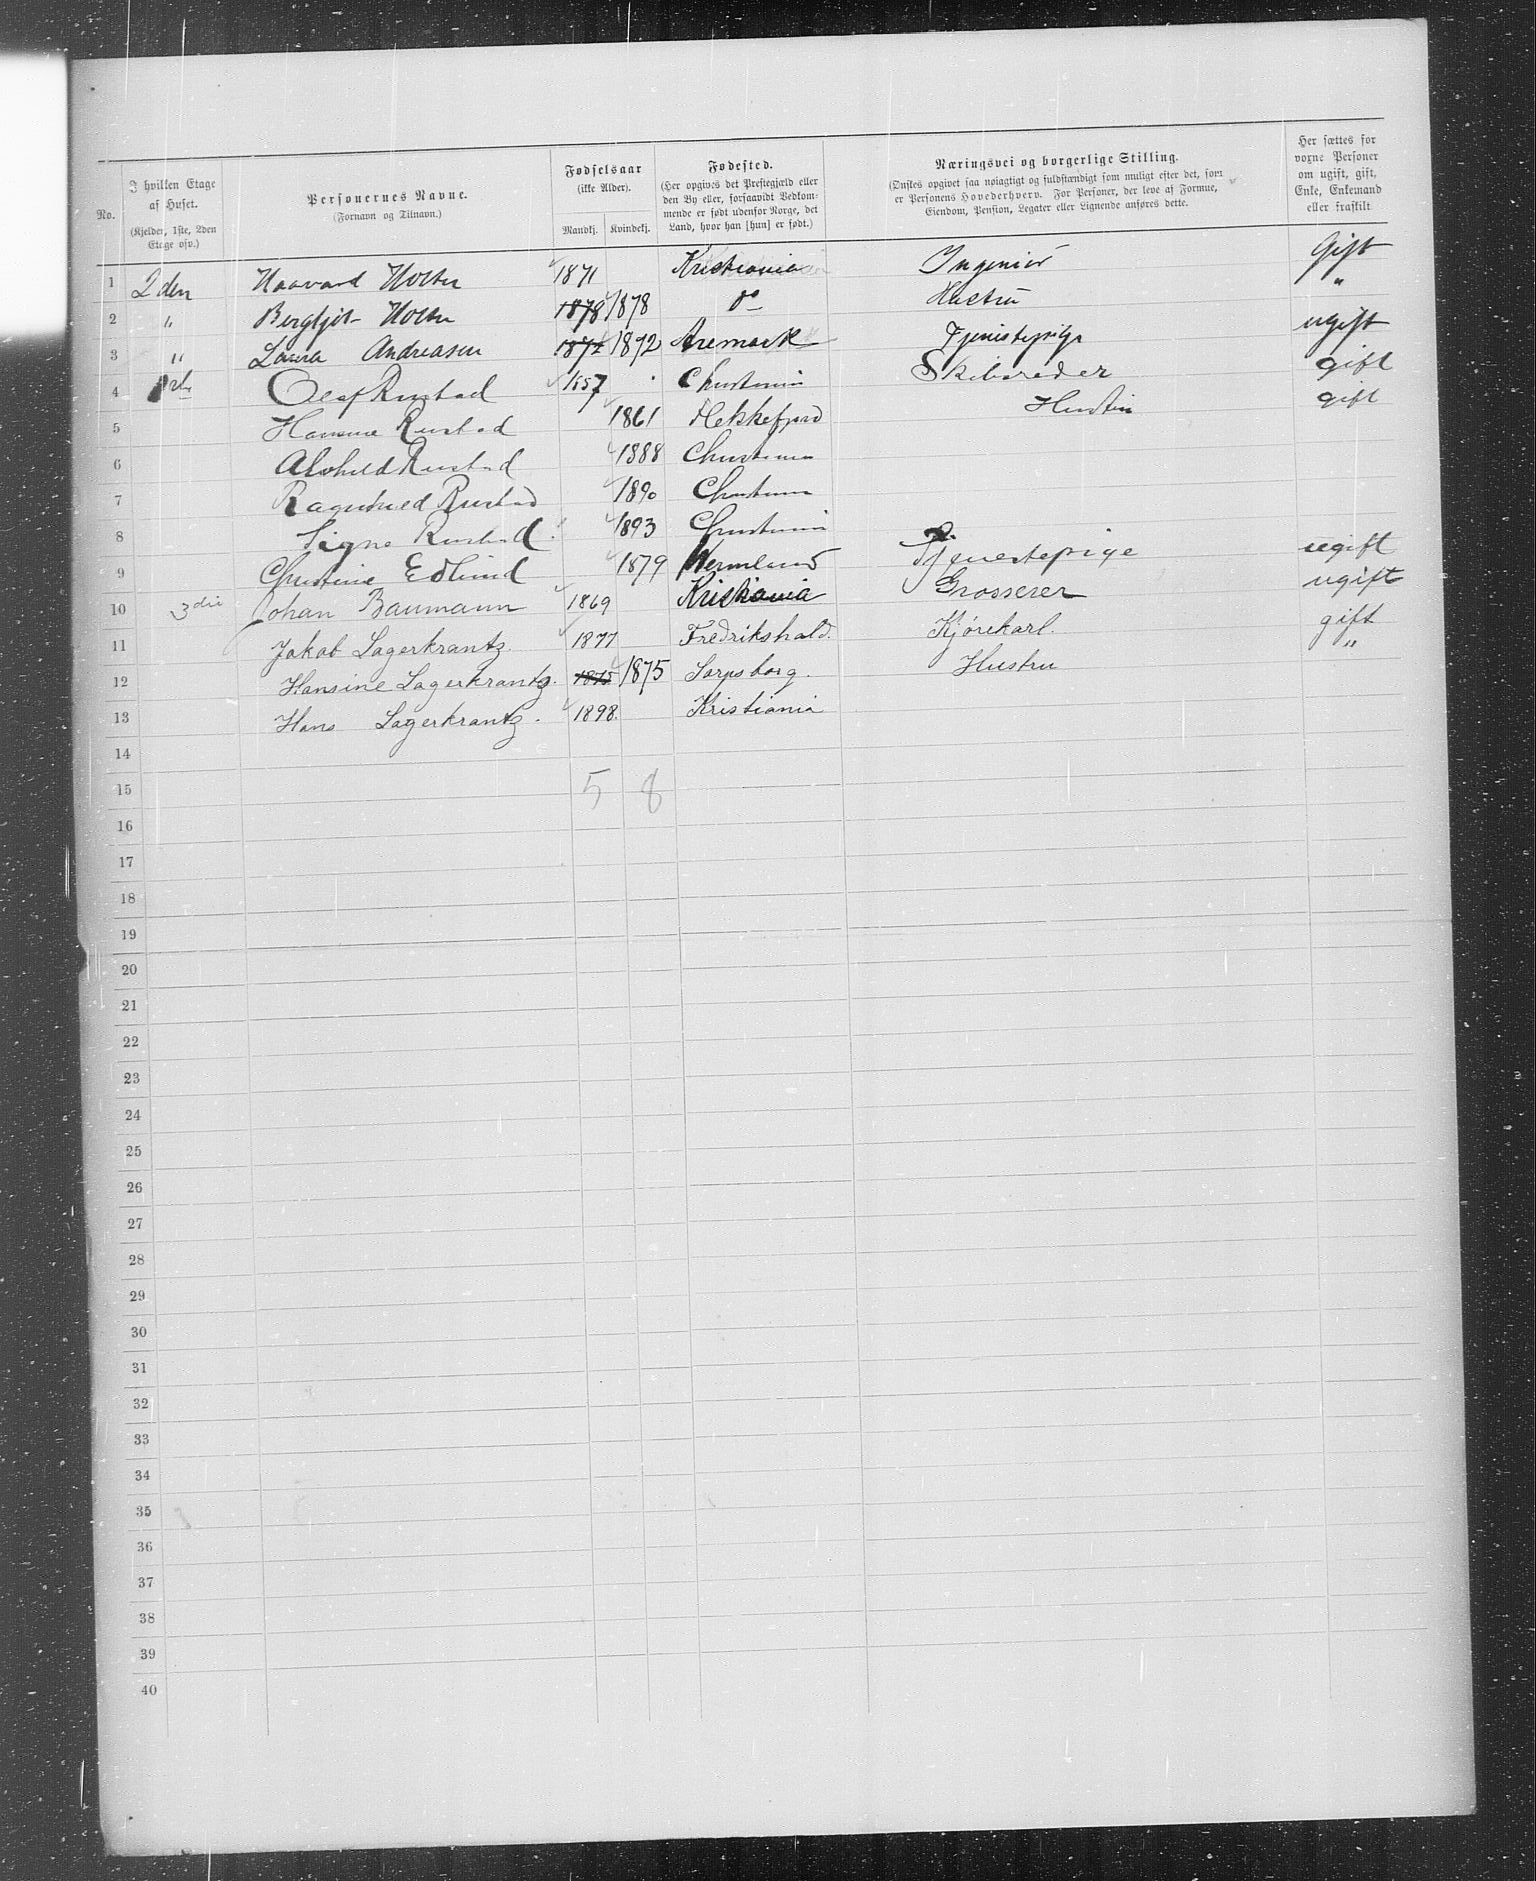 No.
I hvilken Etage af Huset. (Kjelder, 1ste, 2den Etage osv.)
Personernes Navne. (Fornavn og Tilnavn.)
Fødselsaar (ikke Alder). Mandkj. Kvindekj.
Fødested. (Her opgives det Prestegjæld eller den By eller, forsaavidt Vedkommende er født udenfor Norge, det Land, hvor han [hun] er født.)
Næringsvei og borgerlige Stilling. (Ønskes opgivet saa nøiagtigt og fuldstændigt som muligt efter det, som er Personens Hovederhverv. For Personer, der leve af Formue, Eiendom, Pension, Legater eller Lignende anføres dette.
Her sættes for voxne Personer om ugift, gift, Enke, Enkemand eller fraskilt
1 2den Haavard Holter 1871 Kristiania Ingeniør Gift
2 " Bergljot Holter 1878 1878 do Hustru "
3 " Laura Andreasen 1892 Aremark Tjenestepige ugift
4 1ste Olaf Rustad 1857 Christiania Skibsreder gift
5 Hansine Rustad 1861 Flekkefjord Hustru gift
6 Alvhild Rustad 1888 Christiania
7 Ragnhild Rustad 1890 Christiania
8 Signe Rustad 1893 Christiania
9 Christine Edlund 1879 Wermland Tjenestepige ugift
10 3die Johan Baumann 1869 Kristiania Grosserer ugift
11 Jakob Lagerkrantz 1877 Fredrikshald. Kjørekarl. gift
12 Hansine Lagerkrantz. 1875 1875 Sarpsborg. Hustru "
13 Hans Lagerkrantz. 1898. Kristiania
14
15 5 8
16
17
18
19
20
21
22
23
24
25
26
27
28
29
30
31
32
33
34
35
36
37
38
39
40